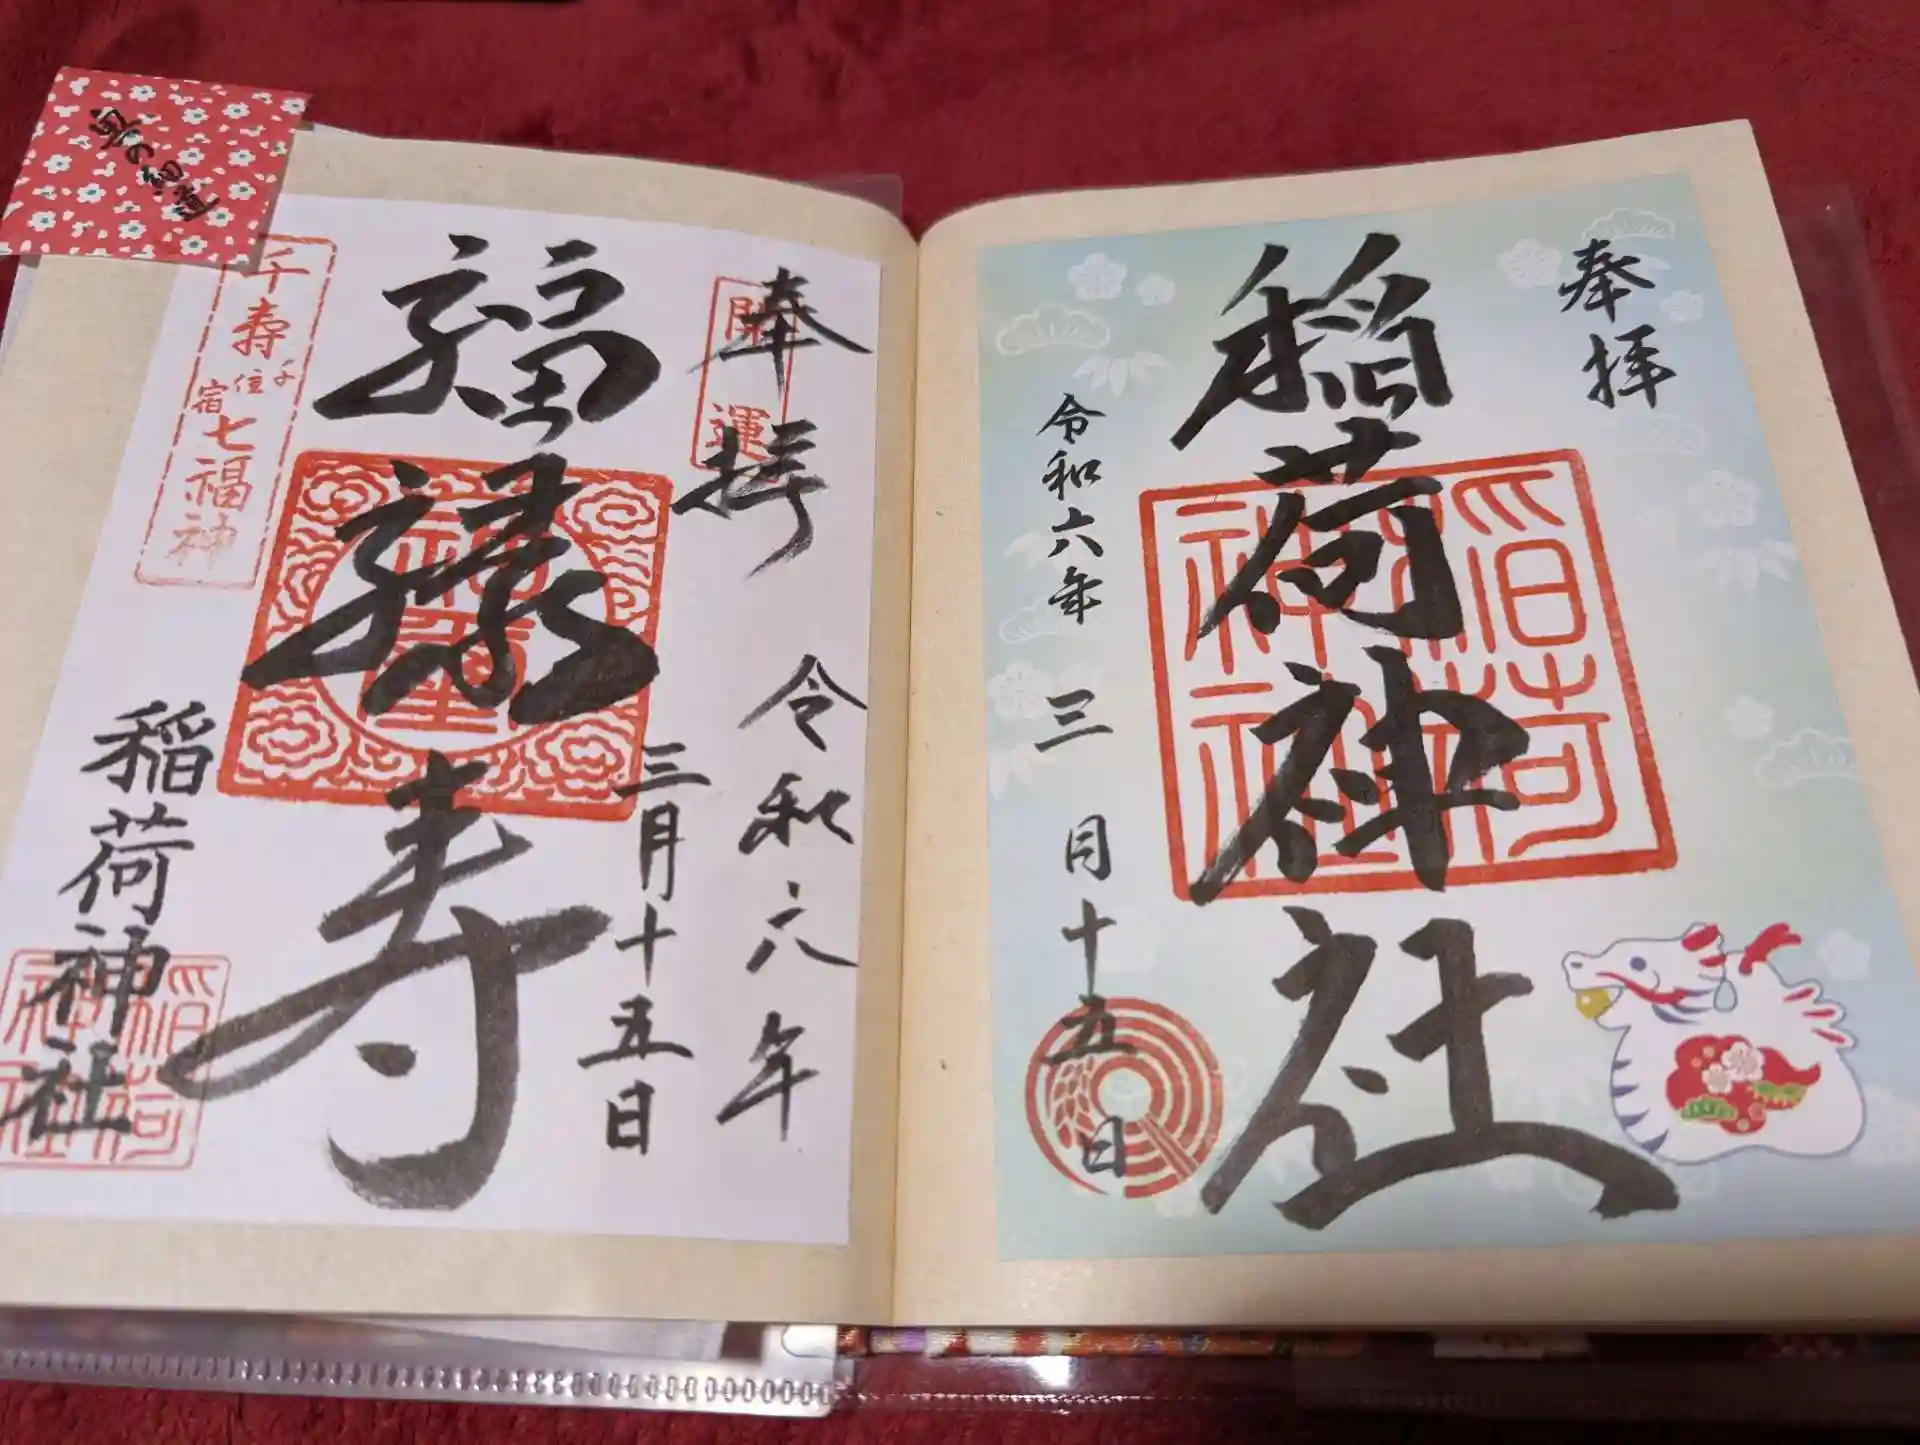 奉拝
稲荷神社
稲荷神社
令和六年 三月十五日
奥の細道
開運
奉拝
令和六年
三月十五日
福禄寿
千寿七福神
千住宿
稲荷神社
稲荷神社